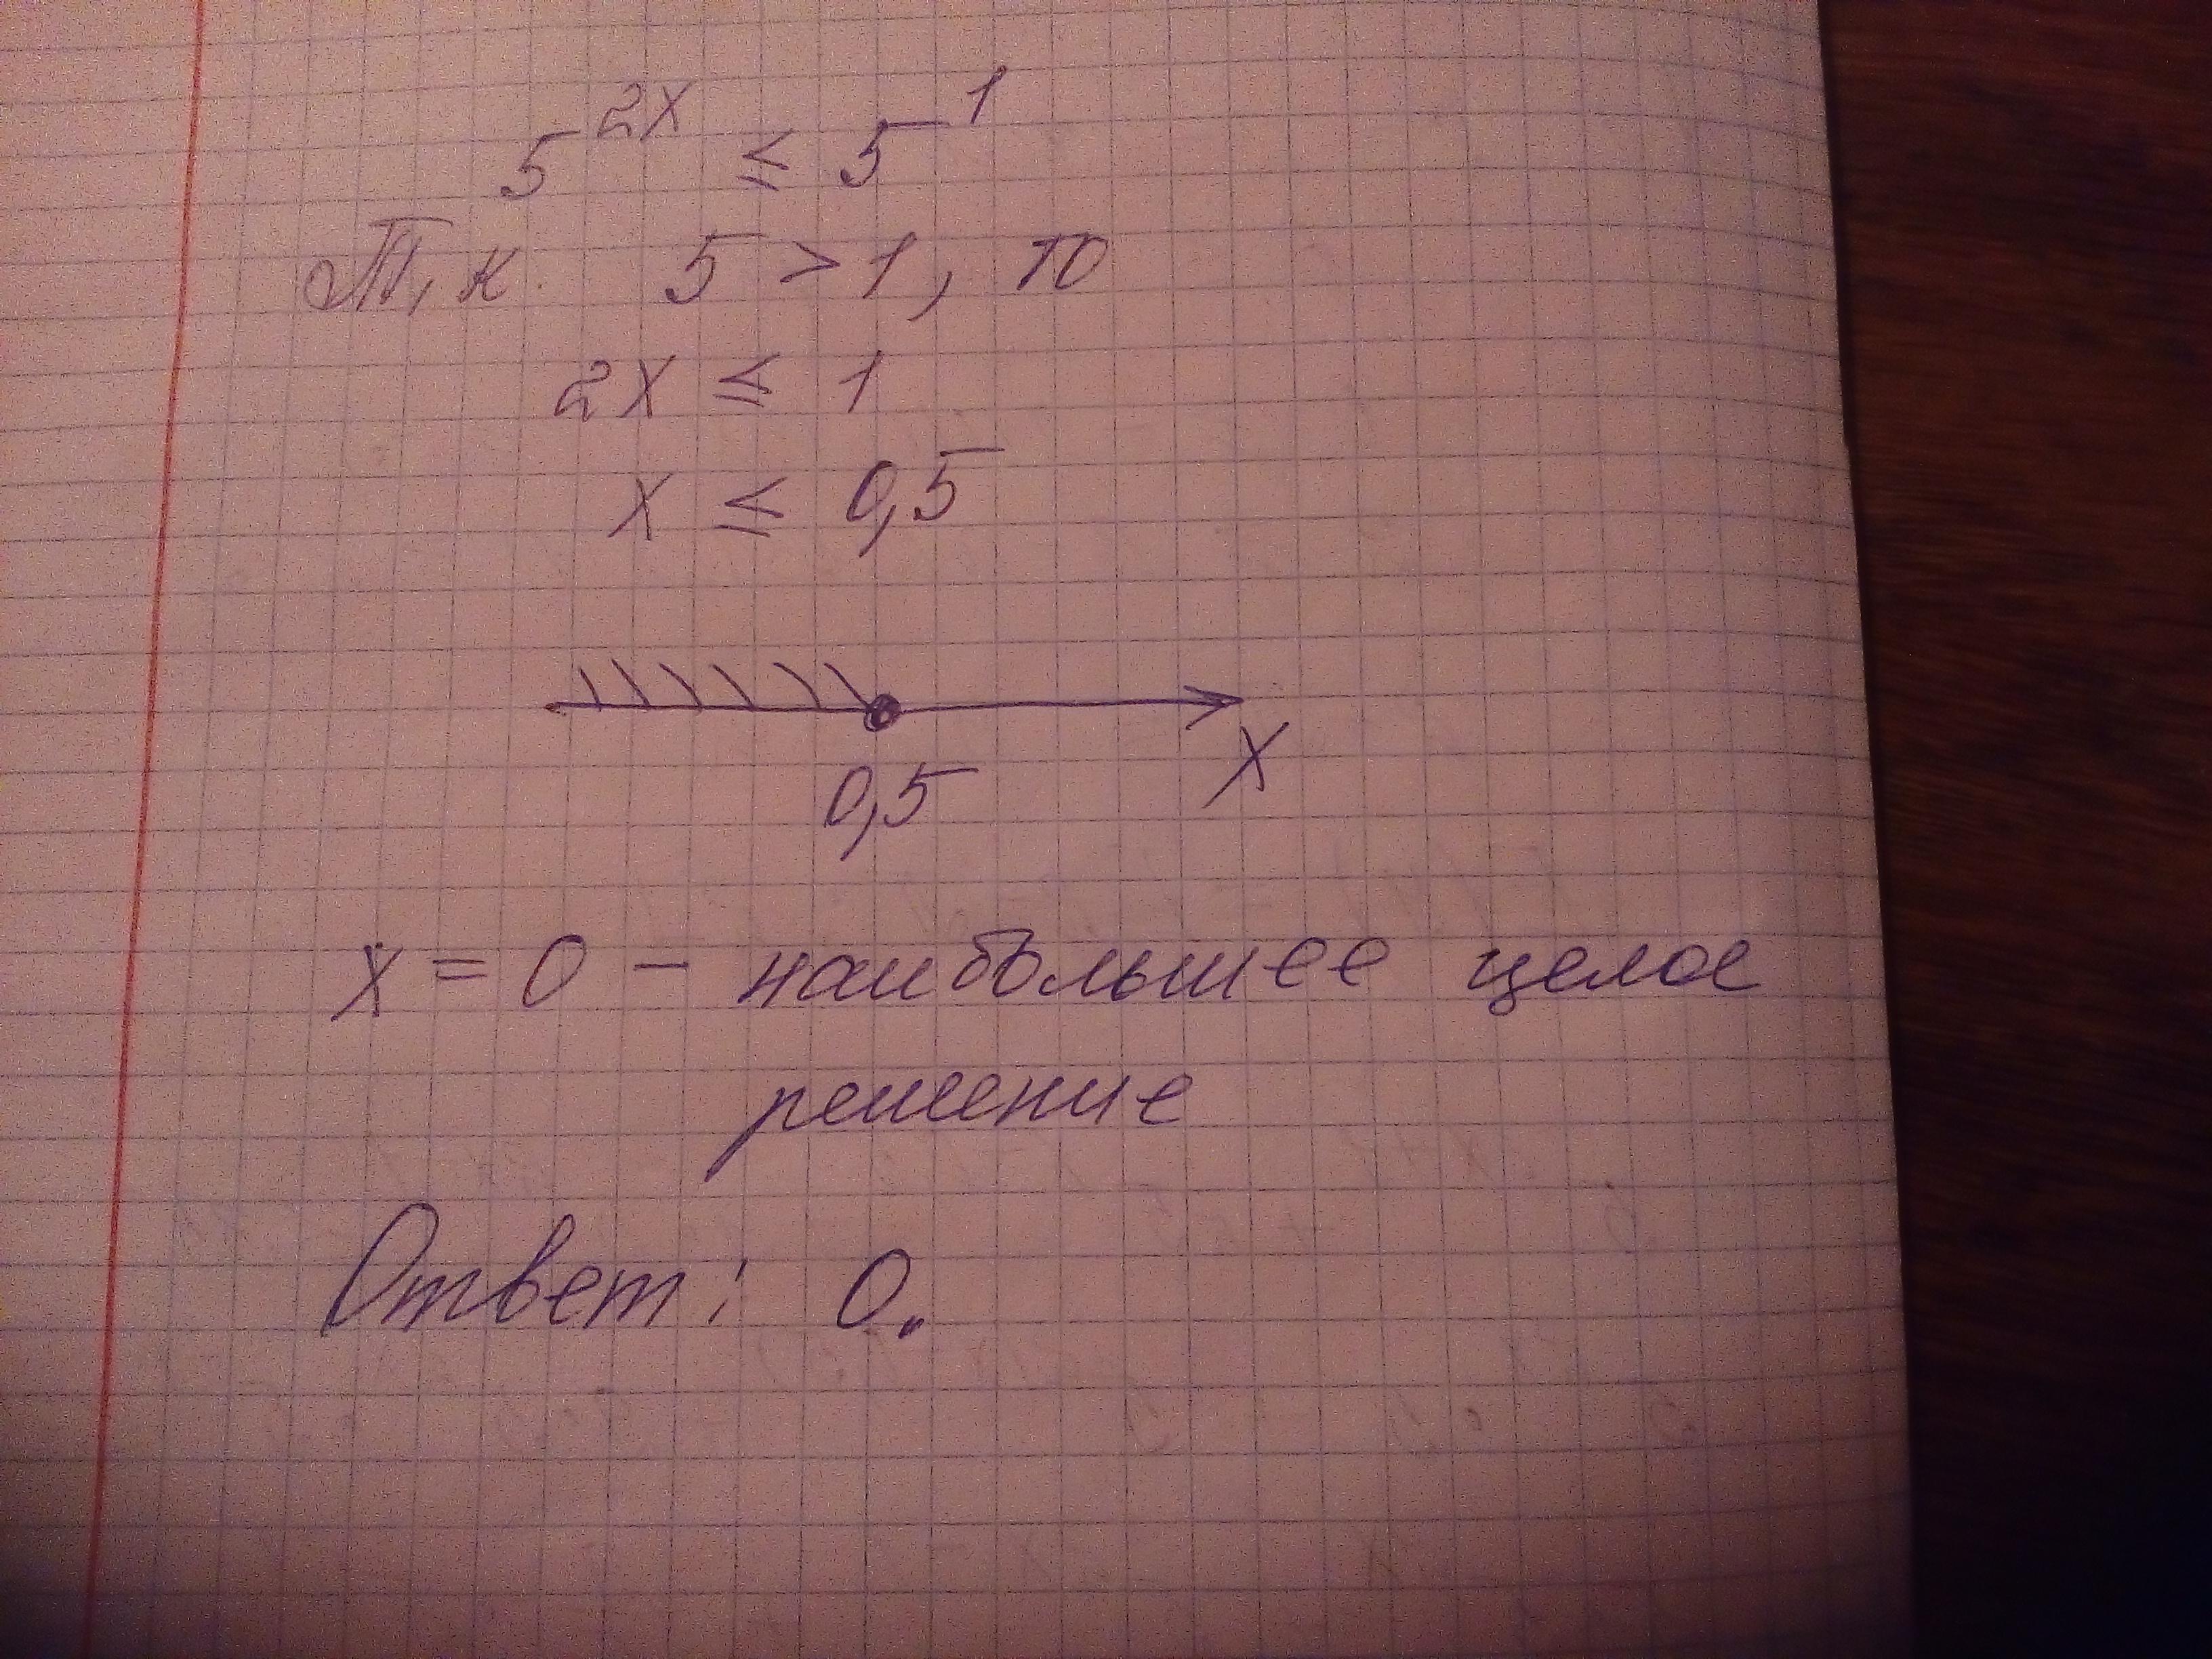 5^{2x} ≤ 5^1
Т.к. 5 > 1, то
2x ≤ 1
x ≤ 0,5
0,5
X
x = 0 – наибольшее целое
решение
Ответ: 0.